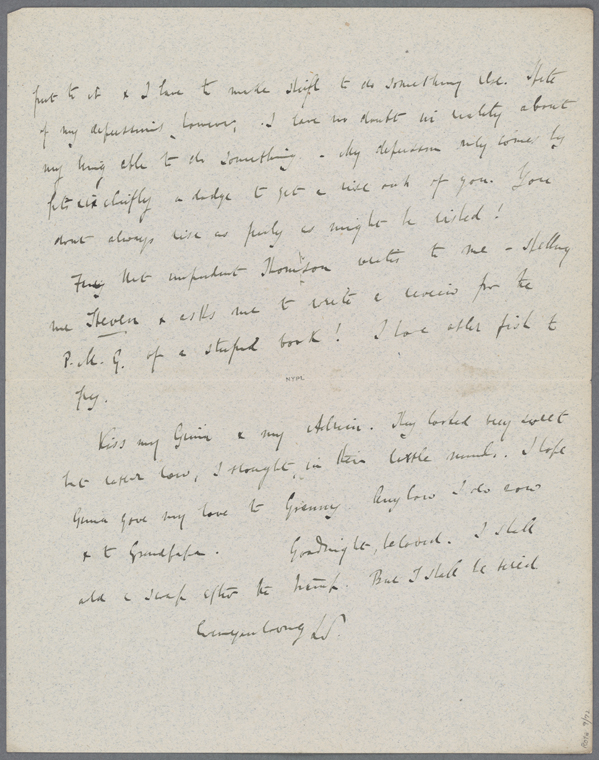 put to it & I have to make shift to do something else. Spite
of my depressions, however, I have no doubt in reality about
my being able to do something - My depression only comes by
fits & is chiefly a dodge to get a rise out of you. You
dont always rise as freely as might be wished!
Fancy that impudent Thompson writes to me - spelling
me Steven & asks me to write a review for the
P.M.G. of a stupid book! I have other fish to
fry.
NYPL
Kiss my Ginia & my Adrian. They looked very sweet
but rather low, I thought, in their little minds. I hope
Ginia gave my love to Granny. Anyhow I do now
& to Grandpapa. Goodnight, beloved. I shall
add a scrap after the tramp. But I shall be tired
Ever your loving LS.